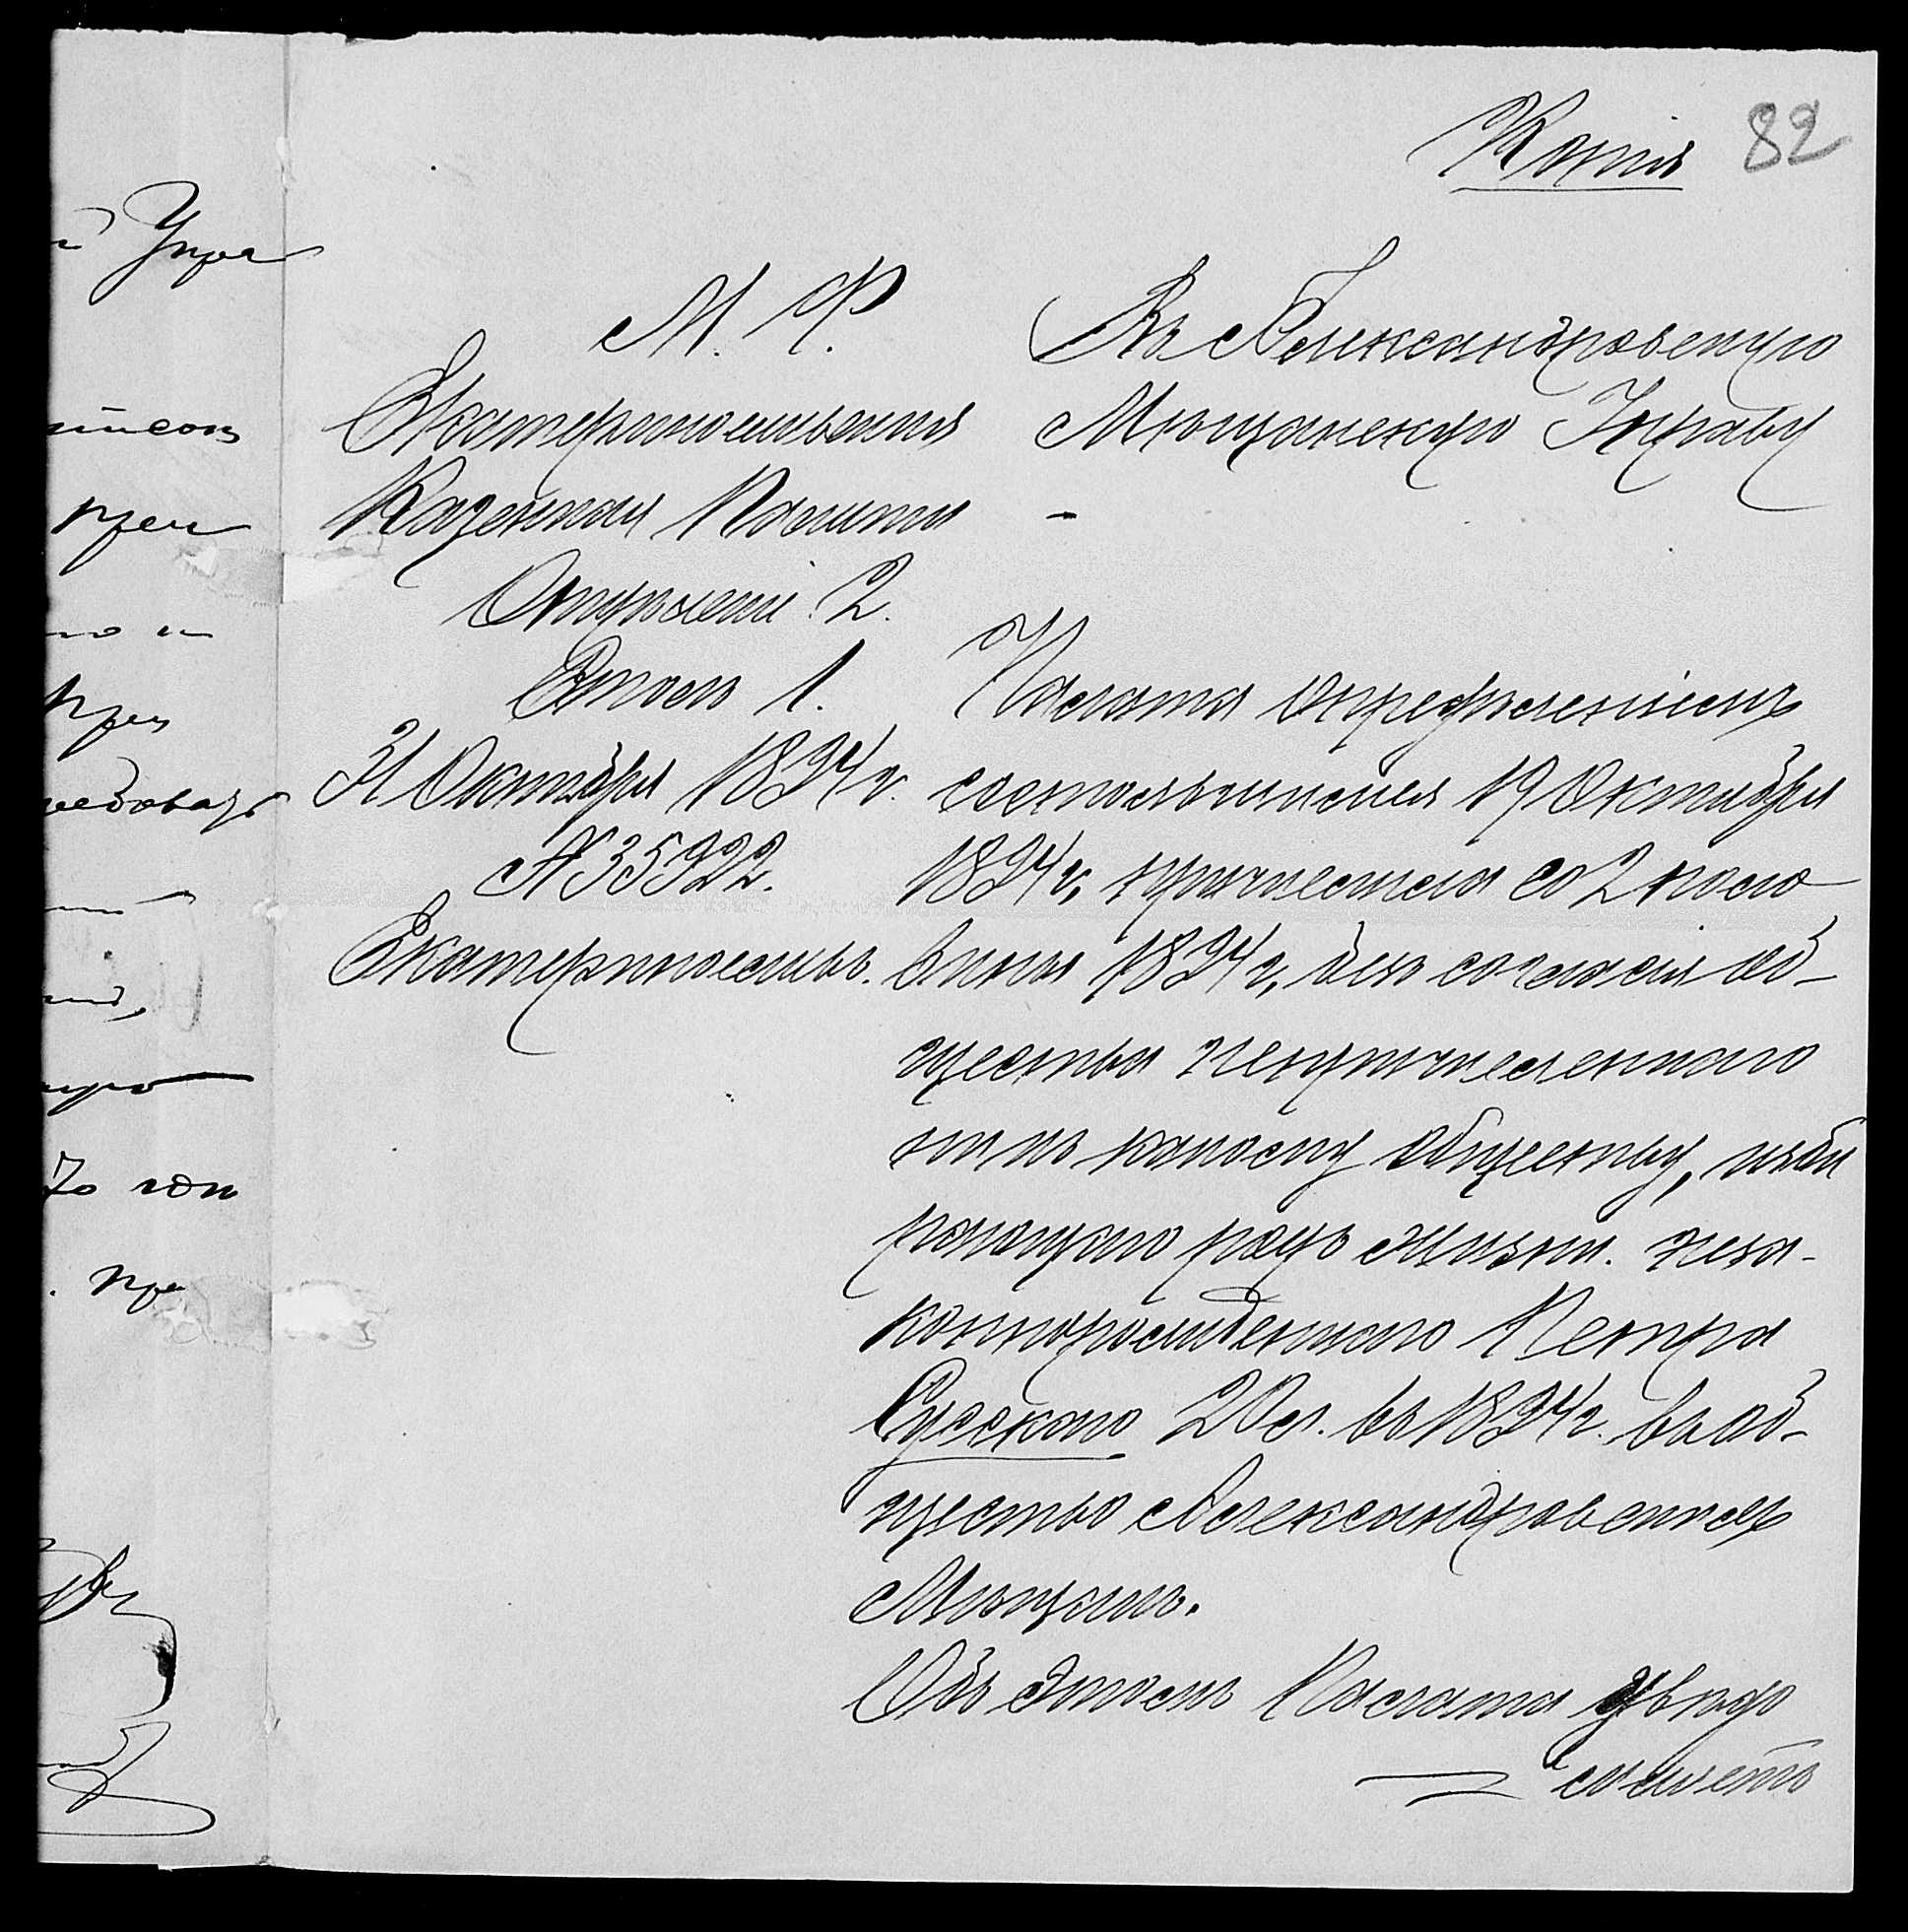 Копія 82
М. Ф.
Екатеринославская
Казенная Палата
Отделені. 2.
Столъ 1.
31 Октября 1894 г.
№ 35922.
Екатеринославъ.
Въ Александровскую
Мѣщанскую Управу
Палата опредѣленіемъ
состоявшимся 19 Октября
1894 г, причислила со 2 поло
вины 1894 г, безъ согласія об-
щества непричисленнаго
ни къ какому обществу, изби
рающаго родъ жизни. неза-
коннорожденнаго Петра
Сусскаго 20 л. въ 1894 г. въ об-
щество Александровскихъ
Мѣщанъ.
Объ этомъ Палата увѣдо
мляетъ
й Упра
прем
но и
През
ледовав
70 год
. пре